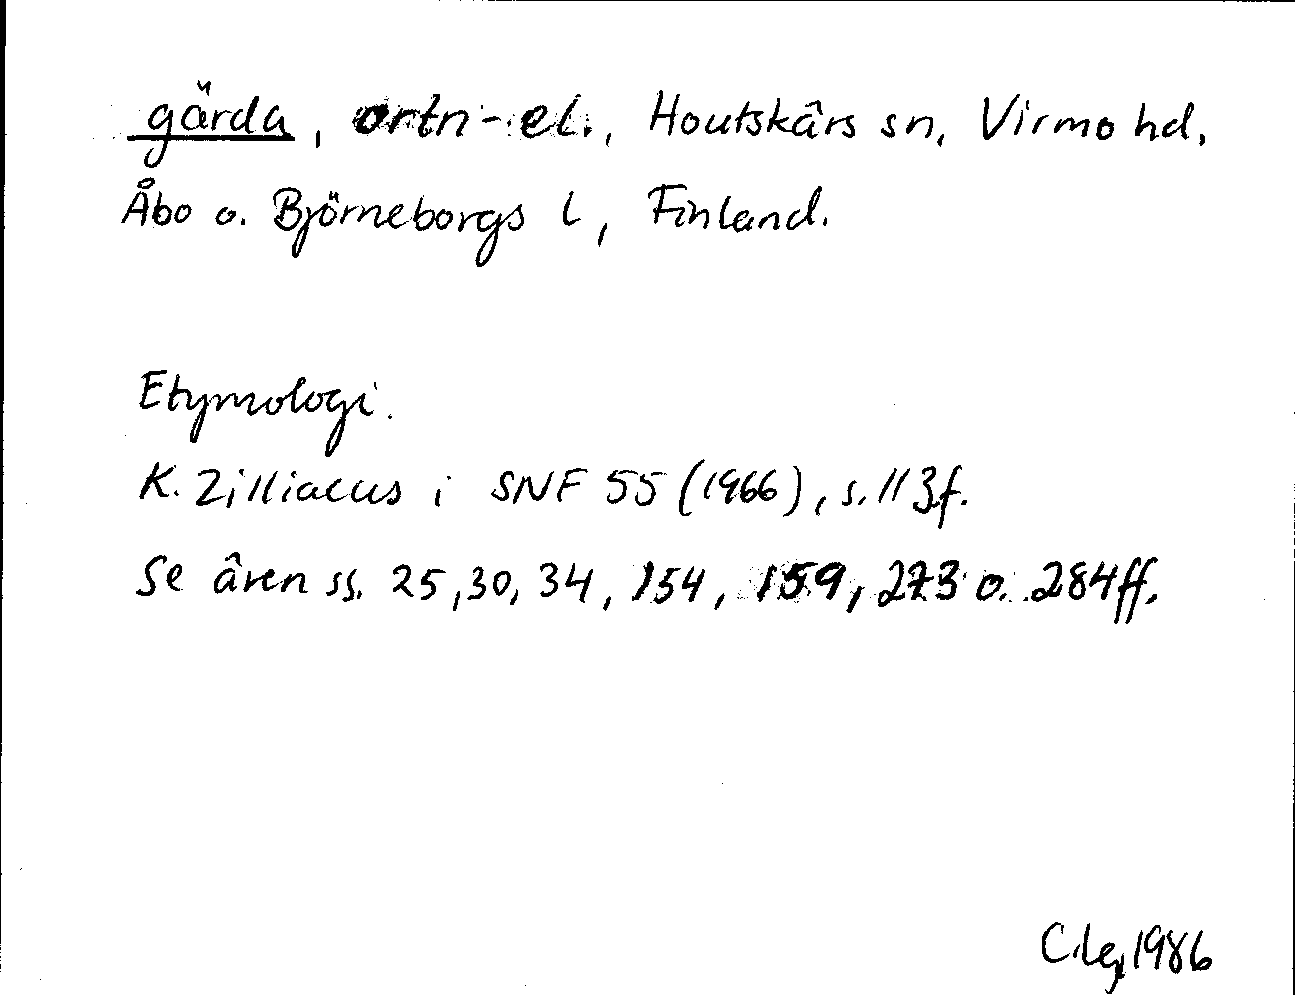 gärda, ortn-el., Houtskärs sn, Virmo hd,
Åbo o. Björneborgs l, Finland.
Etymologi.
K. Zilliacus i SNF 55 (1966), s. 113f.
Se även ss. 25, 30, 34, 154, 159, 273 o. 284ff.
1986